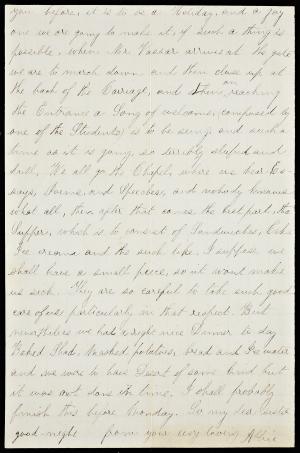 you before, it is to be a Holiday, and a gay
one we are going to make it, if such a thing is
possible, when Mr Vassar arrives at the gate
we are to march down and then close up at
the back of the Carriage, and then, on reaching
the Entrance a Song of welcome, (composed by
one of the Students) is to be sung, and such a
time as it is going, so terribly stupid and
dull, We all go the Chapel, where we hear Es-
says, Poems, and Speeches, and nobody knows
what all, then after that comes the best part, the
Supper, which is to consist of Sandwiches, Cake
Ice creams and the such like, I suppose we
shall have a small piece, so it wont make
us sick. They are so careful to take such good
care of us particularly in that respect. But
nevertheless we had a right nice Dinner to day
Baked Shad, Mashed potatoes, bread and Ice water
and we were to have Desert of some kind but
it was not done in time. I shall probably
finish this before Monday. So my dear
good-night from your very loving Allie